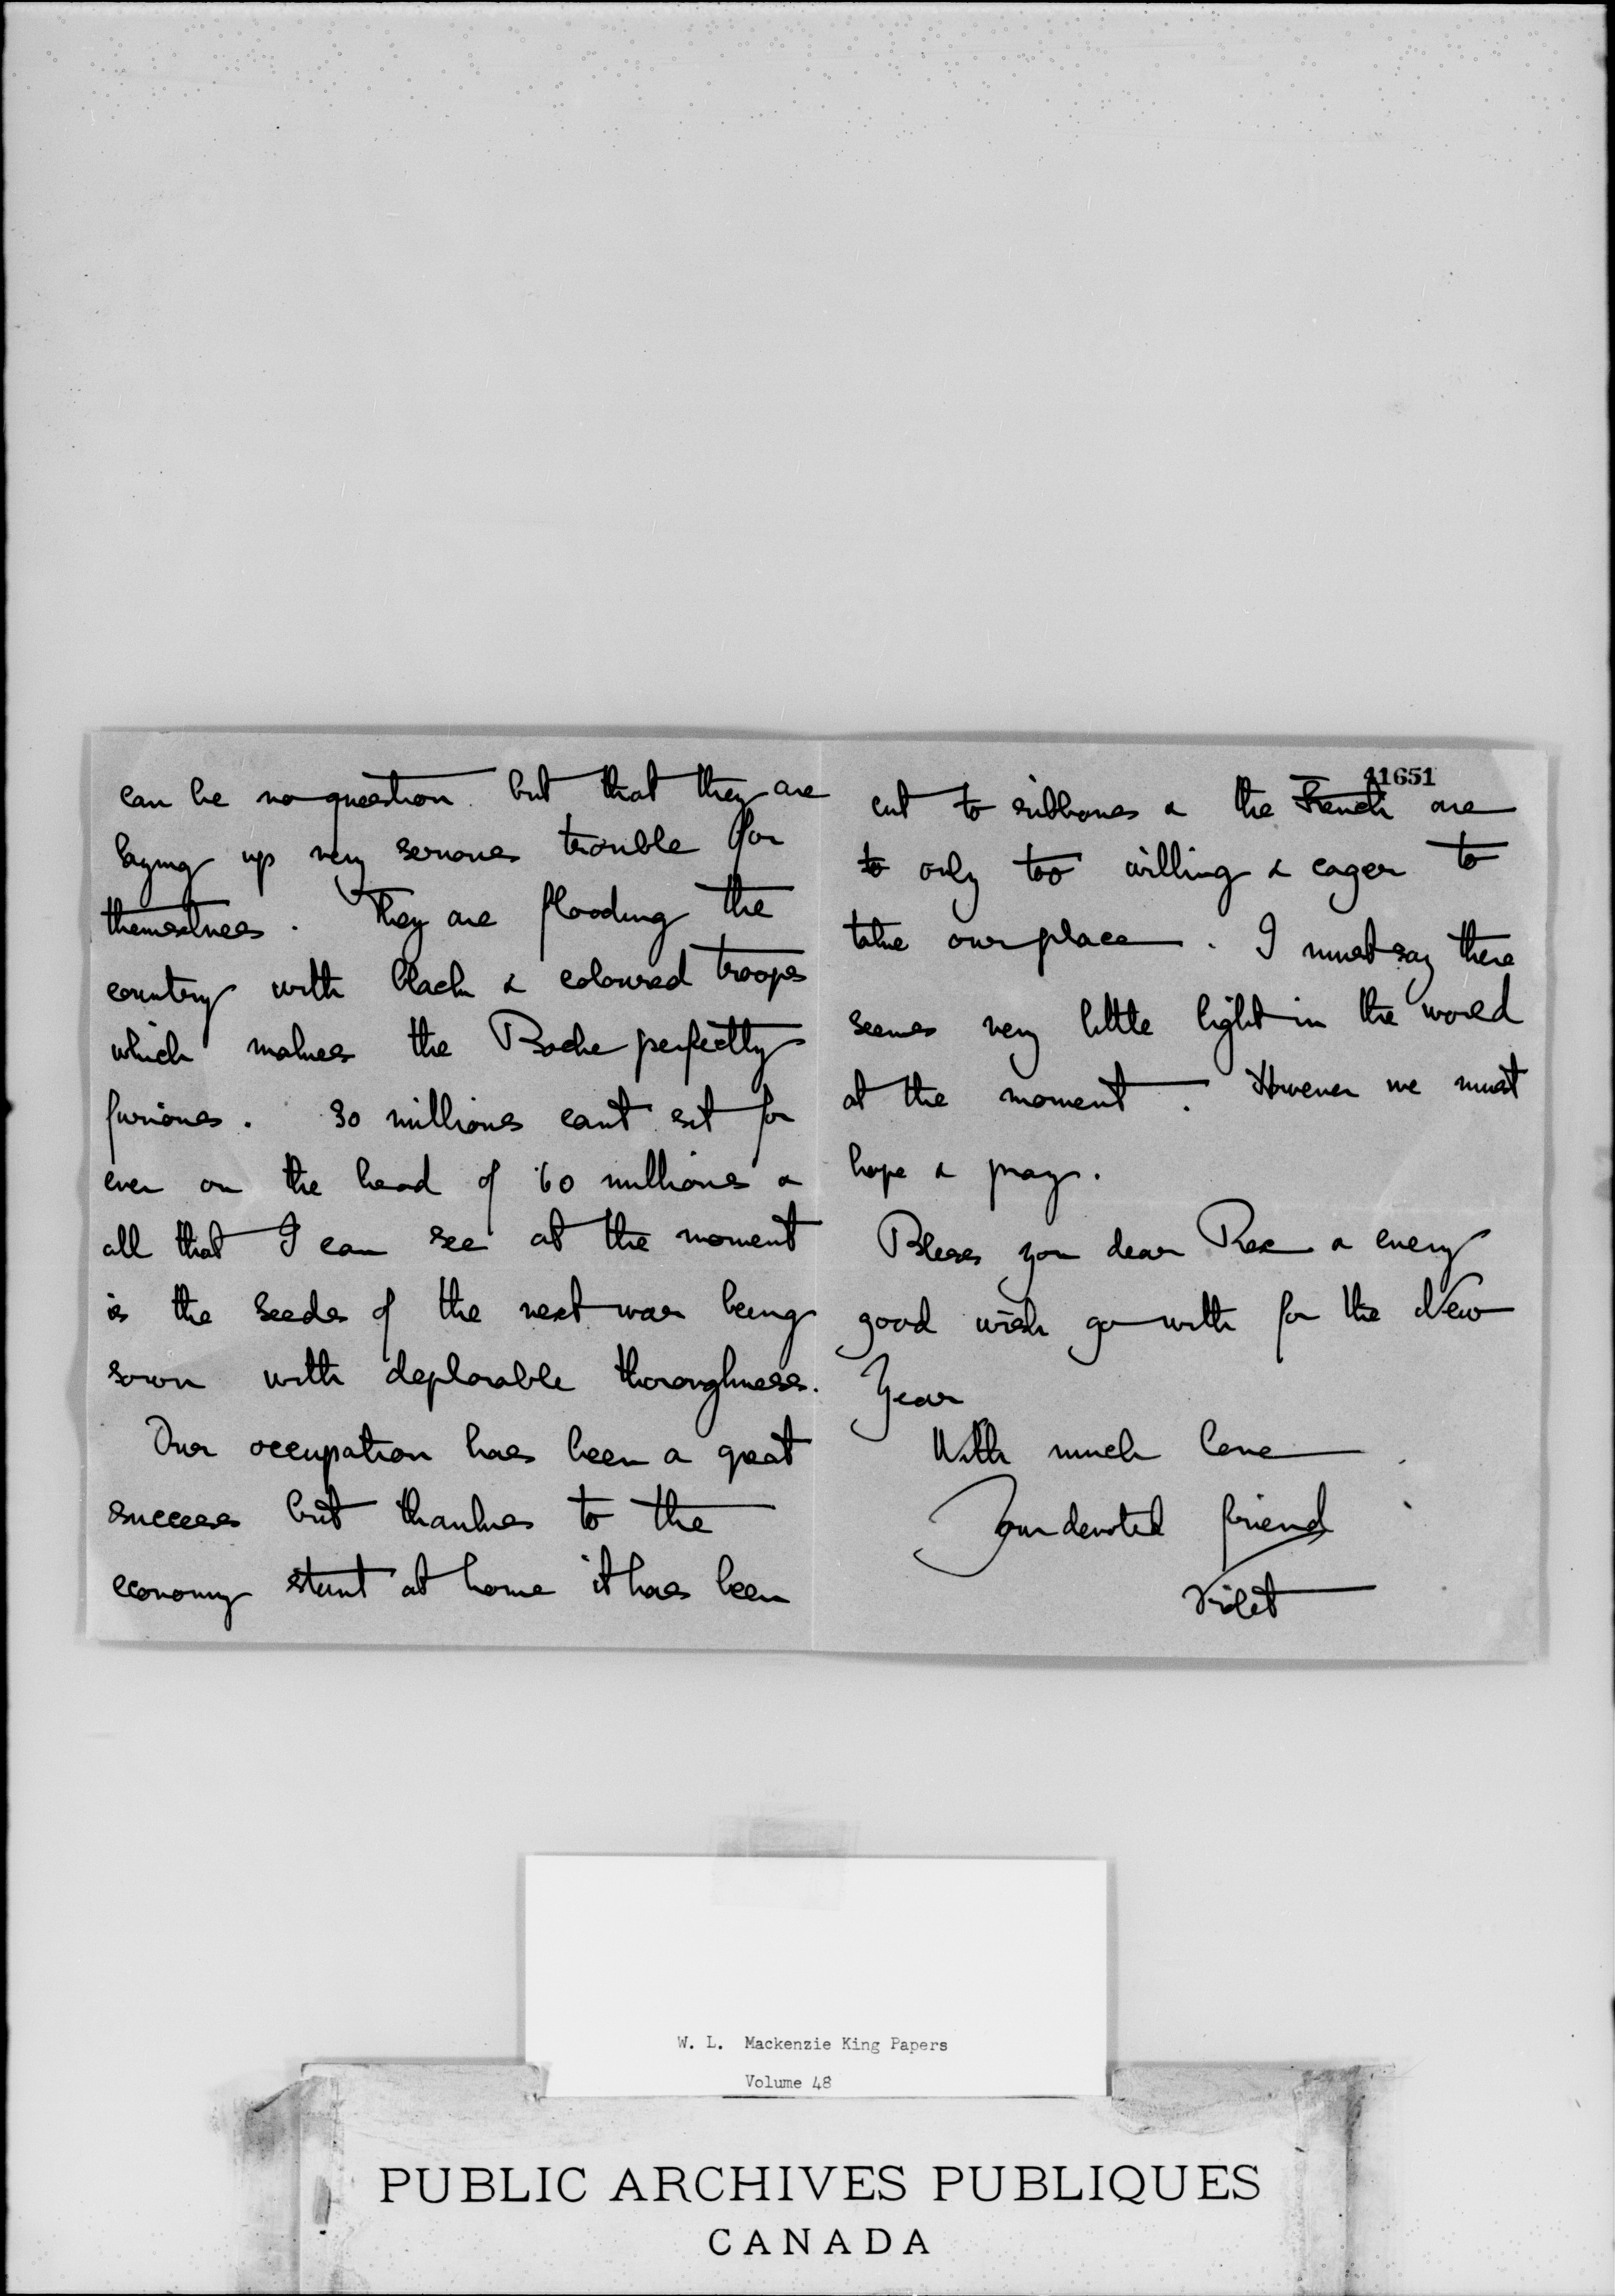 can be no question but that they are
laying up very serious trouble for
themselves. They are flooding the
country with black & coloured troops
which makes the Boche perfectly
furious. 30 millions cant sit for
ever on the head of 60 millions &
all that I can see at the moment
is the seeds of the next war being
sown with deplorable thoroughness.
Our occupation has been a great
success but thanks to the
economy stunt at home it has been
41651
cut to ribbons & the French are
to only too willing & eager to
take our place. I must say there
seems very little light in the world
at the moment. However we must
hope & pray.
Bless you dear Rex & every
good wish go with for the New
Year
With much love
Your devoted friend
Violet
W. L. Mackenzie King Papers
Volume 48
PUBLIC ARCHIVES PUBLIQUES
CANADA